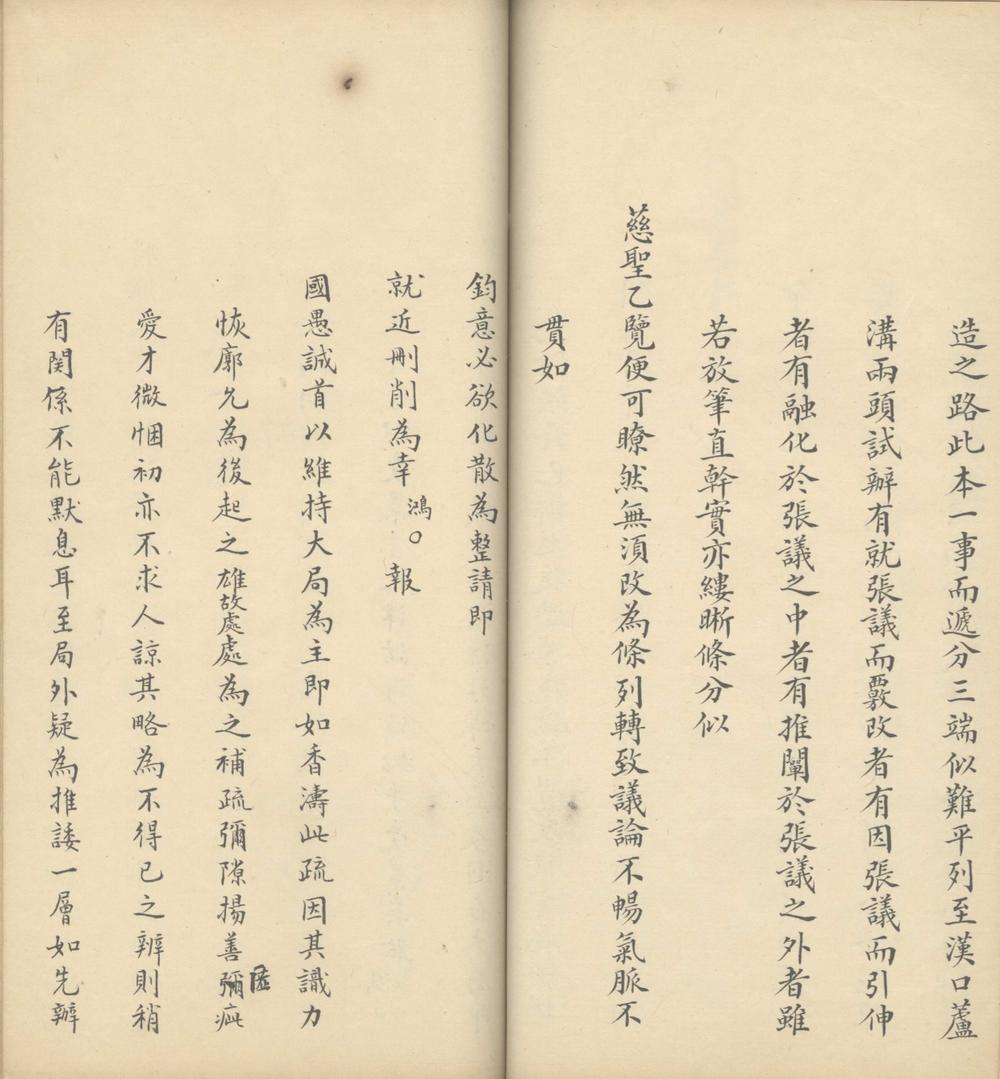 造之路此本一事而遞分三端似難平列至漢口蘆
溝兩頭試辦有就張議而覈改者有因張議而引伸
者有融化於張議之中者有推闡於張議之外者雖
若放筆直幹實亦縷晰條分似
慈聖乙覽便可瞭然無須改為條列轉致議論不暢氣脈不
貫如
鈞意必欲化散為整請即
就近刪削為幸鴻〇報
國愚誠首以維持大局為主即如香濤此疏因其識力
恢廓允為後起之雄故處處為之補疏彌隙揚善彌疵
匿
愛才微悃初亦不求人諒其略為不得已之辨則稍
有関係不能默息耳至局外疑為推諉一層如先辦